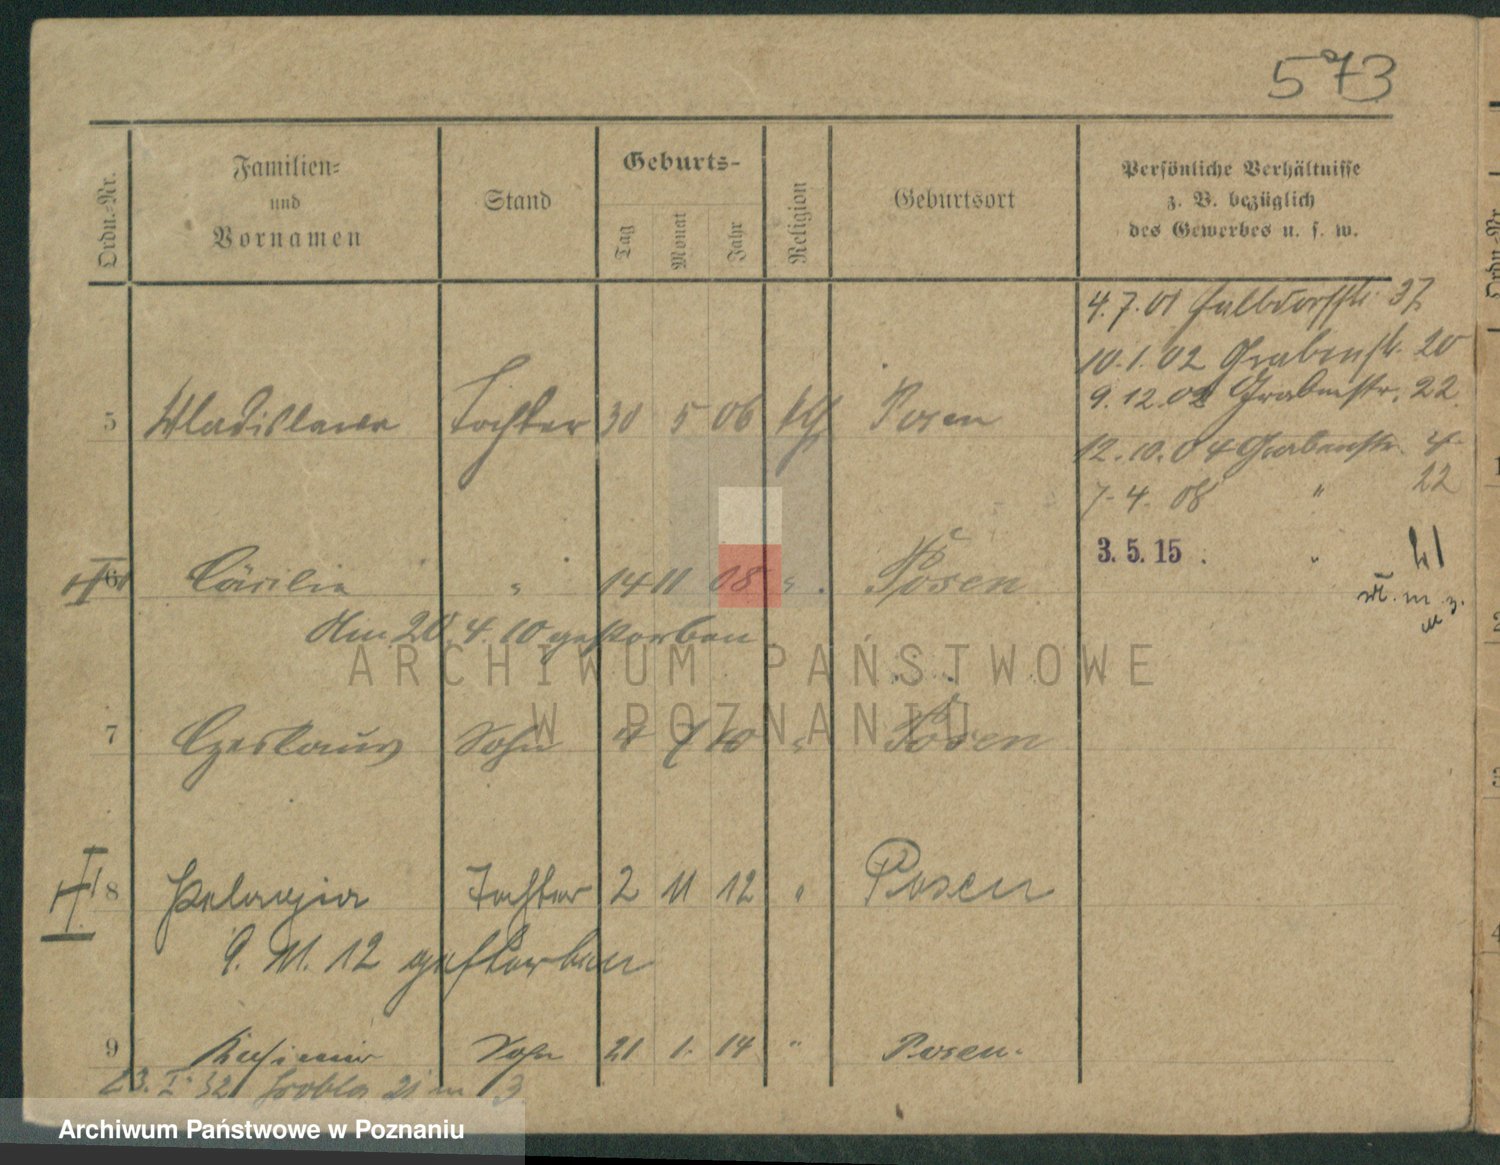 573
Ordn.-Nr.
Familien-
und
Vornamen
Stand
Geburts-
Tag
Monat
Jahr
Religion
Geburtsort
Persönliche Verhältnisse
z. B. bezüglich
des Gewerbes u. s. w.
4.7.01 Halbdorfstr. 37
10.1.02 Grabenstr. 20
9.12.02 Grabenstr. 22
5 Wladislawa Tochter 30 5 06 kth Posen
12.10.04 Grabenstr. 4
7.4.08 " 22
3.5.15. " 21
6 Cäcilie " 14 11 08 " . Posen
Am 28.4.10 gestorben
7 Czeslaus Sohn 4 7 10 " Posen
8 Pelagia Tochter 2 11 12 " Posen
9. 11. 12 gestorben
9 Kasimir Sohn 21 1. 14 " Posen.
23. I. 32 Grobla 21 m 3
ARCHIWUM PAŃSTWOWE
W POZNANIU
Archiwum Państwowe w Poznaniu
Ordn.-Nr.